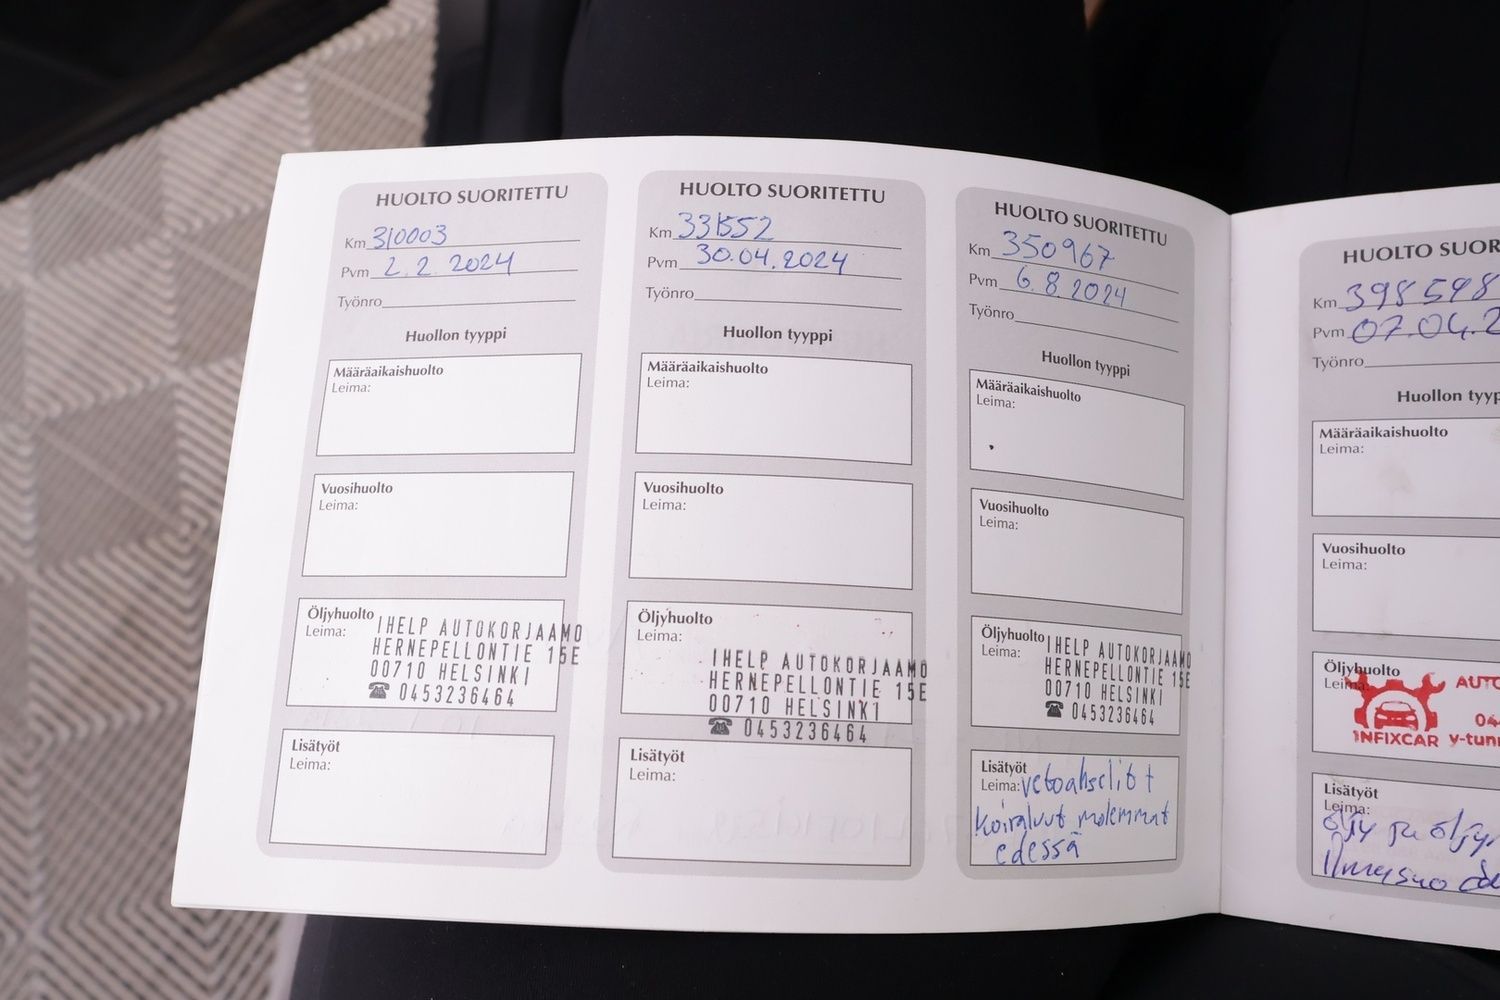 HUOLTO SUORITETTU
Km 310003
Pvm 2.2.2024
Työnro
Huollon tyyppi
Määräaikaishuolto
Leima:
Vuosihuolto
Leima:
Öljyhuolto
Leima:
IHELP AUTOKORJAAMO
HERNEPELLONTIE 15E
00710 HELSINKI
☎ 0453236464
Lisätyöt
Leima:
HUOLTO SUORITETTU
Km 331552
Pvm 30.04.2024
Työnro
Huollon tyyppi
Määräaikaishuolto
Leima:
Vuosihuolto
Leima:
Öljyhuolto
Leima:
IHELP AUTOKORJAAMO
HERNEPELLONTIE 15E
00710 HELSINKI
☎ 0453236464
Lisätyöt
Leima:
HUOLTO SUORITETTU
Km 350967
Pvm 6.8.2024
Työnro
Huollon tyyppi
Määräaikaishuolto
Leima:
Vuosihuolto
Leima:
Öljyhuolto
Leima:
IHELP AUTOKORJAAMO
HERNEPELLONTIE 15E
00710 HELSINKI
☎ 0453236464
Lisätyöt
Leima: vetoakselit
koiraluut molemmat
edessä
HUOLTO SUOR
Km 398598
Pvm 07.04.2
Työnro
Huollon typ
Määräaikaishuolto
Leima:
Vuosihuolto
Leima:
Öljyhuolto
Leima:
AUTO
04
INFIXCAR y-tunn
Lisätyöt
Leima: